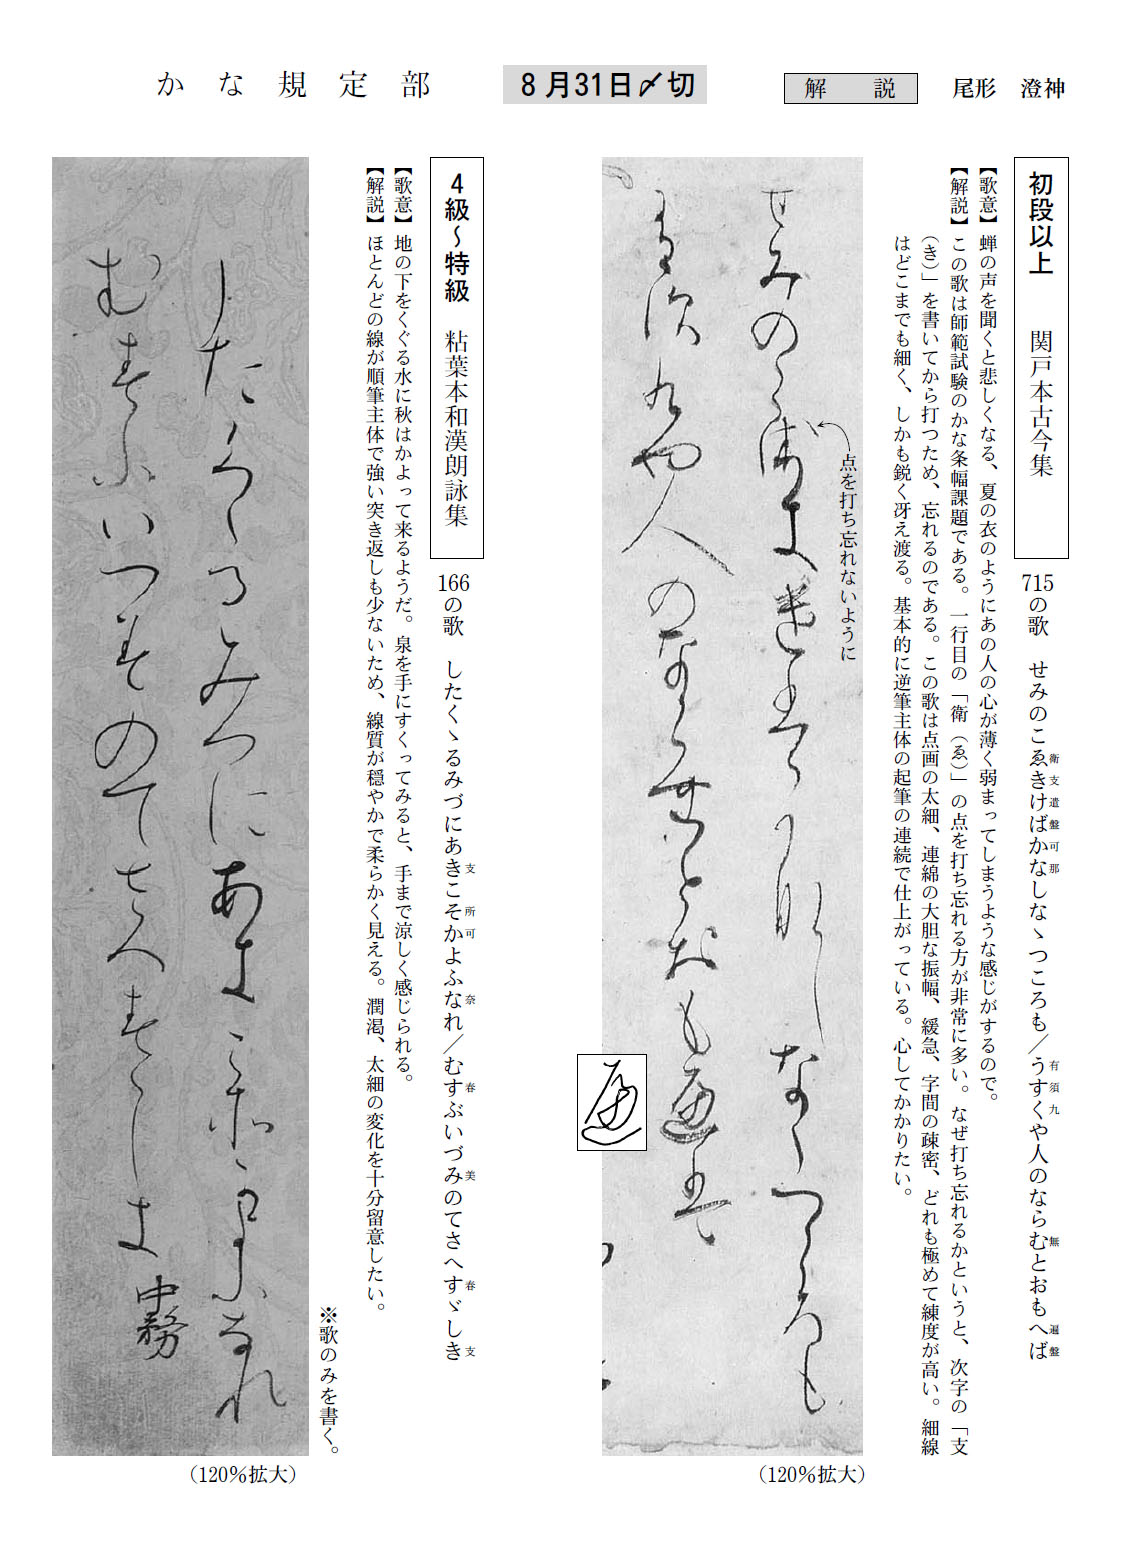 かな規定部
8月31日〆切
解説
尾形 澄神
初段以上 関戸本古今集
715の歌 せみのこゑきけばかなしなゝつころも／うすくや人のならむとおもへば
衛支遣盤可那
有須九
無
遍盤
【歌意】蝉の声を聞くと悲しくなる、夏の衣のようにあの人の心が薄く弱まってしまうような感じがするので。
【解説】この歌は師範試験のかな条幅課題である。一行目の「衛（ゑ）」の点を打ち忘れる方が非常に多い。なぜ打ち忘れるかというと、次字の「支
（き）」を書いてから打つため、忘れるのである。この歌は点画の太細、連綿の大胆な振幅、緩急、字間の疎密、どれも極めて練度が高い。細線
はどこまでも細く、しかも鋭く冴え渡る。基本的に逆筆主体の起筆の連続で仕上がっている。心してかかりたい。
点を打ち忘れないように
せみのこ衛支遣盤可那しなゝつころも
有須九や人のなら無とおも遍盤
遍
（120％拡大）
4級～特級 粘葉本和漢朗詠集
166の歌 したくゝるみづにあきこそかよふなれ／むすぶいづみのてさへすゞしき
支
所可
奈
春
美
春
支
【歌意】地の下をくぐる水に秋はかよって来るようだ。泉を手にすくってみると、手まで涼しく感じられる。
【解説】ほとんどの線が順筆主体で強い突き返しも少ないため、線質が穏やかで柔らかく見える。潤渇、太細の変化を十分留意したい。
※歌のみを書く。
したくゝるみつにあ支こ所可よふ奈れ
む春ふいつ美のてさへ春ゝし支 中務
（120％拡大）